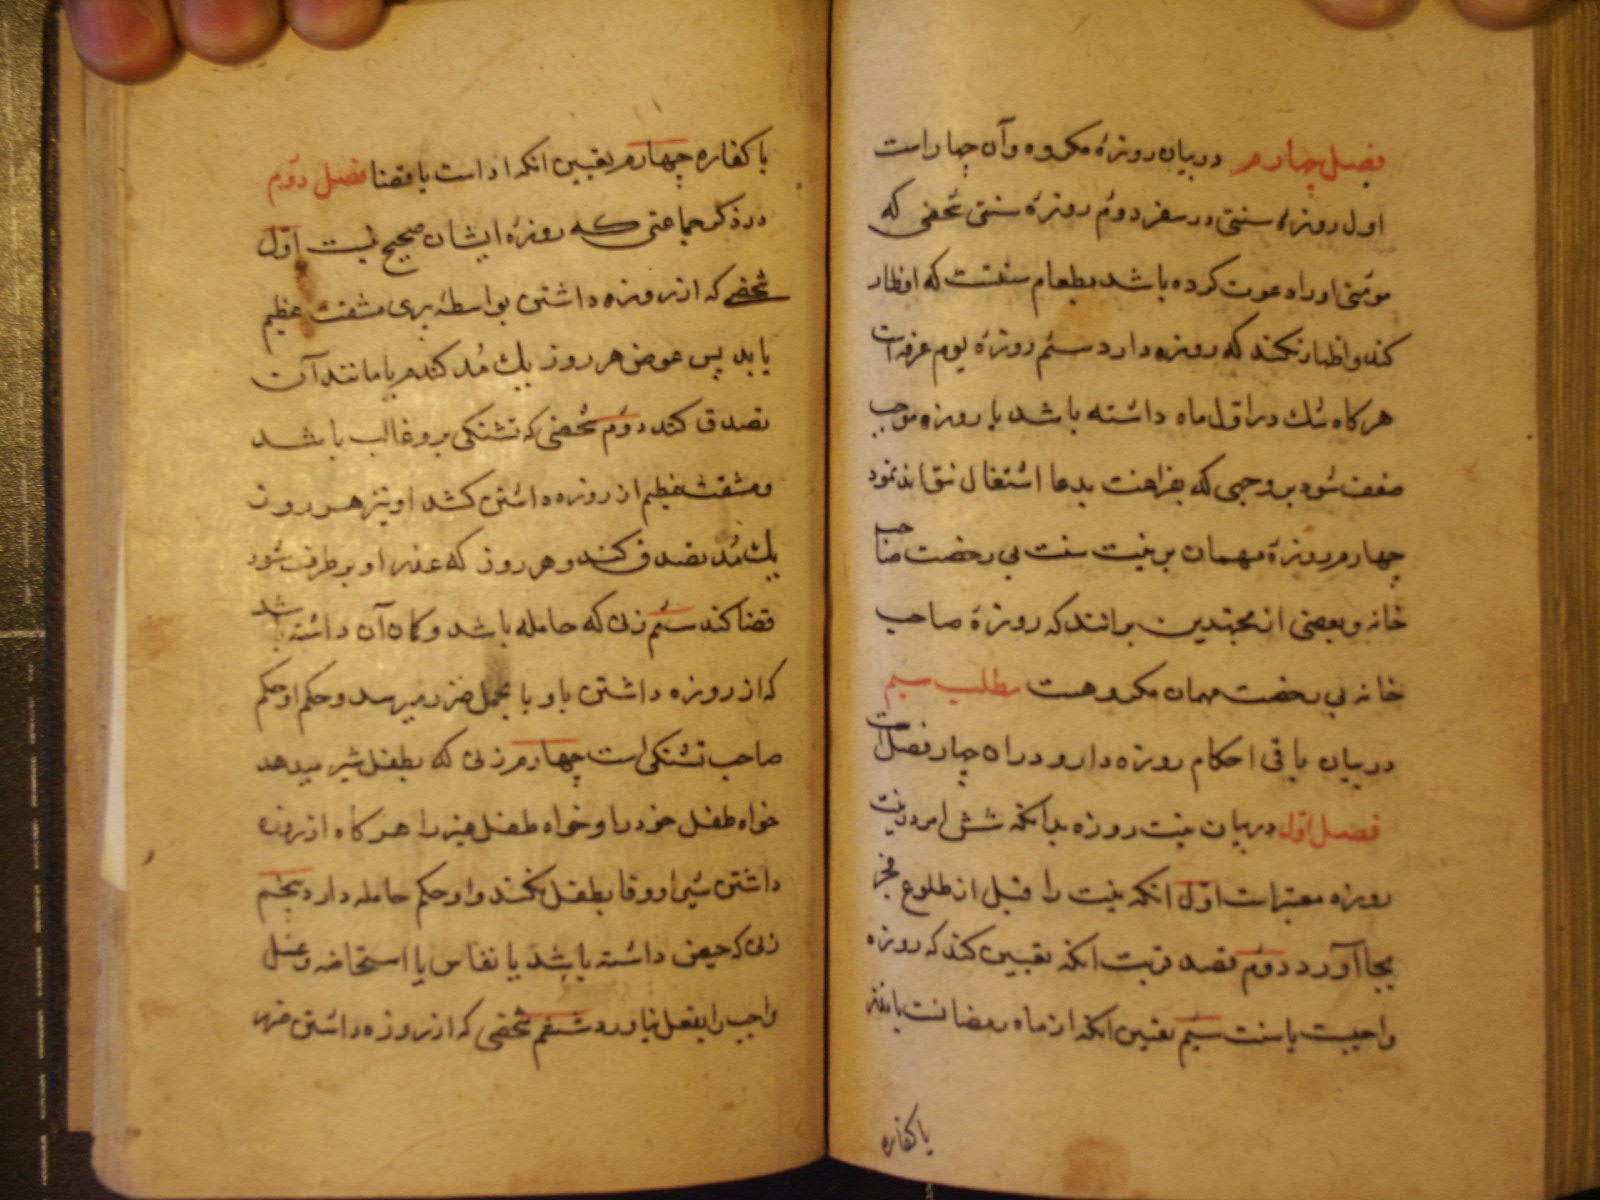 فصل چهارم در بیان روزهٔ مکروه و آن چهار است
اول روزهٔ سنتی در سفر دوم روزهٔ سنتی شخصی که
مؤمنی او را دعوت کرده باشد بطعام سنتست که افطار
کند و اظهار نکند که روزه دارد سیم روزهٔ یوم عرفه است
هرگاه شک در اول ماه داشته باشد یا روزه موجب
ضعف شود بر وجهی که بفراغت بدعا اشتغال نتواند نمود
چهارم روزهٔ مهمان بر نیت سنت بی رخصت صاحب
خانه و بعضی از مجتهدین برانند که روزهٔ صاحب
خانه بی رخصت مهمان مکروهست مطلب سیم
در بیان باقی احکام روزه دار و در ان چهار فصل است
فصل اول در بیان نیت روزه بدانکه شش امر در نیت
روزه معتبر است اول انکه نیت را قبل از طلوع فجر
بجا آورد دوم قصد قربت انکه تعیین کند که روزه
واجبست یا سنت سیم تعیین انکه از ماه رمضانست یا نذر
یا کفاره
یا کفاره چهارم تعیین انکه ادا است یا قضا فصل دوم
در ذکر جماعتی که روزهٔ ایشان صحیح نیست اول
شخصی که از روزه داشتن بواسطهٔ پیری مشقت عظیم
یابد پس عوض هر روز یك مُد کندم یا مانند آن
تصدق کند دوم شخصی که تشنکی برو غالب باشد
و مشقت عظیم از روزه داشتن کشد او نیز هر روز
یك مُد تصدق کند و هر روز که عذر او بر طرف شود
قضا کند سیم زنی که حامله باشد و کمان آن داشته باشد
که از روزه داشتن باو یا بحمل ضرر میرسد و حکم او حکم
صاحب تشنکی است چهارم زنی که بطفل شیر میدهد
خواه طفل خود را و خواه طفل غیر را هرکاه از روزه
داشتن شیر او وفا بطفل نکند و او حکم حامله دارد پنجم
زنی که حیض داشته باشد یا نفاس یا استحاضه و غسل
واجب را بفعل نیاورد ششم شخصی که از روزه داشتن ضرر